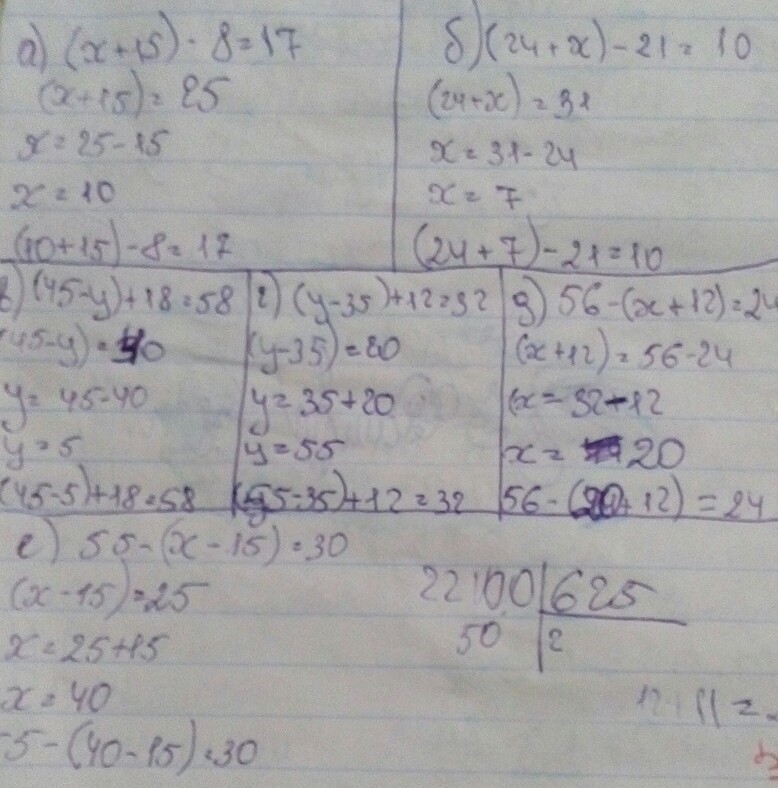 а) (x+15) - 8=17
(x+15)= 25
x=25-15
x=10
(10+15)-8=17
б) (24+x)-21= 10
(24+x)=31
x=31-24
x= 7
(24+7)-21=10
в) (45-y)+18=58
(45-y)=40
y= 45-40
y=5
(45-5)+18=58
г) (y-35)+12=32
(y-35)=20
y=35+20
y=55
(55-35)+12=32
д) 56-(x+12)=24
(x+12)=56-24
x=32-12
x= 20
56-(20+12)=24
е) 55-(x-15)=30
(x-15)=25
x=25+15
x=40
5-(40-15)=30
22100 625
50 2